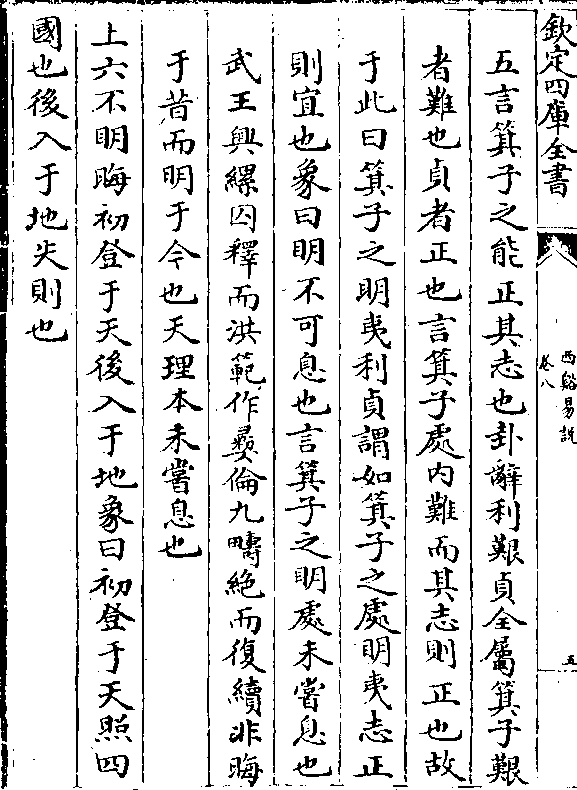 欽定四庫全書
西谿易說
卷八
五
五言箕子之能正其志也卦辭利艱貞全屬箕子艱
者難也貞者正也言箕子處内難而其志則正也故
于此曰箕子之明夷利貞謂如箕子之處明夷志正
則宜也象曰明不可息也言箕子之明處未嘗息也
武王興縲囚釋而洪範作彛倫九疇絶而復續非晦
于昔而明于今也天理本未嘗息也
上六不明晦初登于天後入于地象曰初登于天照四
國也後入于地失則也